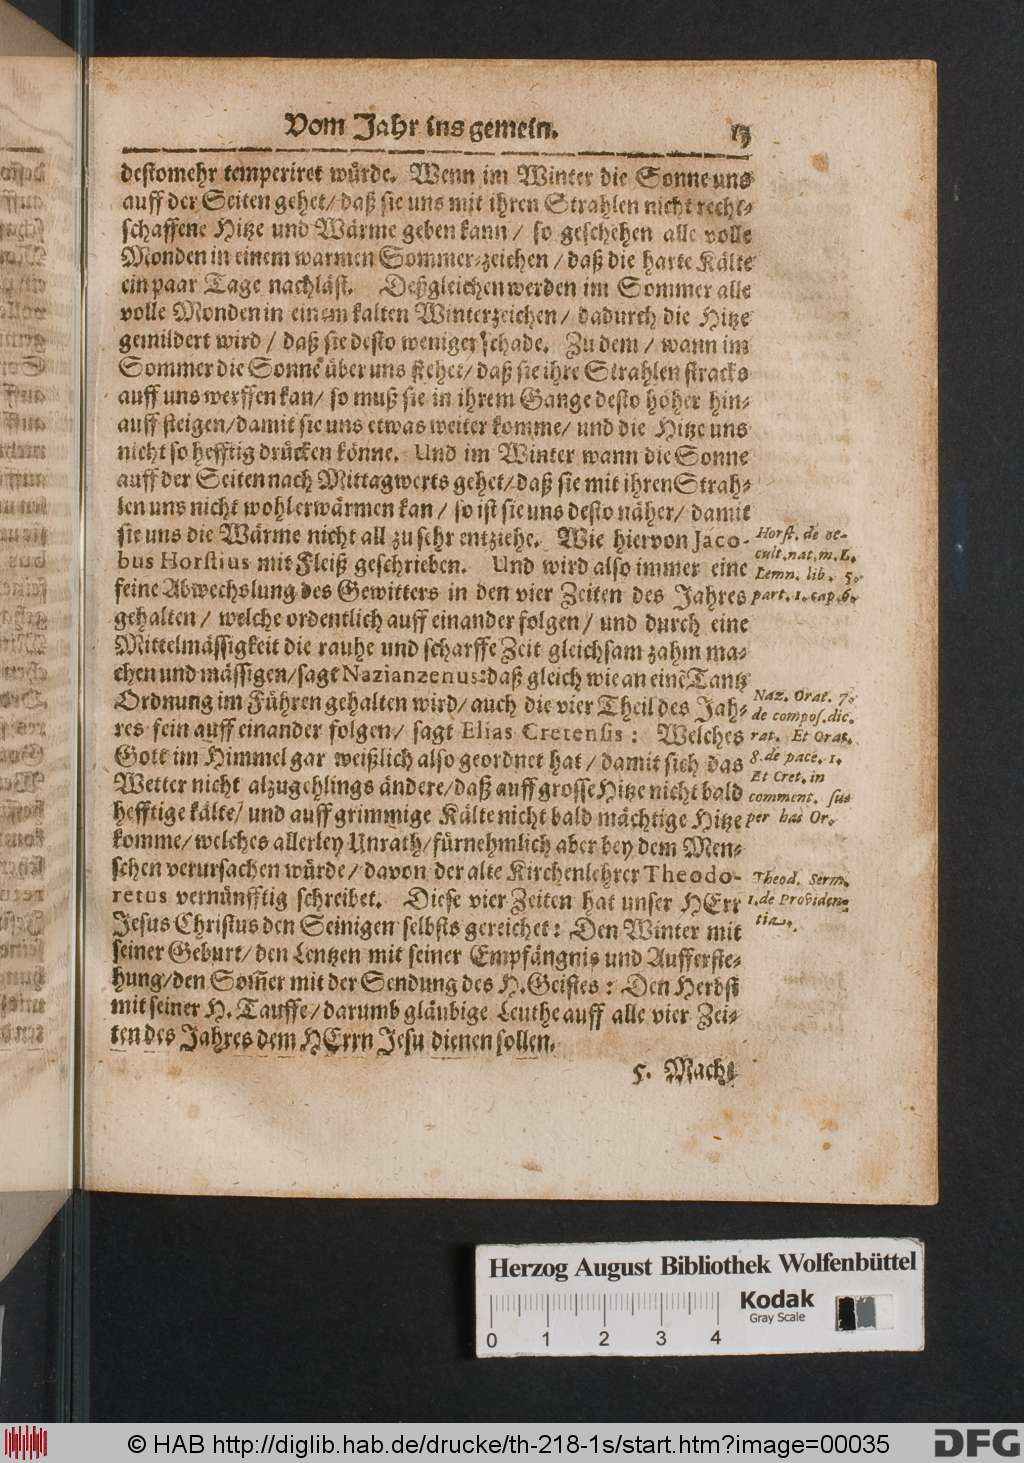 Vom Jahr ins gemein.
destomehr temperiret würde. Wenn im Winter die Sonne uns
auff der Seiten gehet/ daß sie uns mit ihren Strahlen nicht recht-
schaffene Hitze und Wärme geben kann/ so geschehen alle volle
Monden in einem warmen Sommer-zeichen/ daß die harte Kälte
ein paar Tage nachläst. Deßgleichen werden im Sommer alle
volle Monden in einem kalten Winterzeichen/ dadurch die Hitze
gemildert wird/ daß sie desto weniger schade. Zu dem/ wann im
Sommer die Sonne über uns stehet/ daß sie ihre Strahlen stracks
auff uns werffen kan/ so muß sie in ihrem Gange desto höher hin-
auff steigen/ damit sie uns etwas weiter komme/ und die Hitze uns
nicht so hefftig drücken könne. Und im Winter wann die Sonne
auff der Seiten nach Mittagwerts gehet/ daß sie mit ihren Strah-
len uns nicht wohl erwärmen kan/ so ist sie uns desto näher/ damit
sie uns die Wärme nicht all zu sehr entziehe. Wie hiervon Jaco-
bus Horstius mit Fleiß geschrieben. Und wird also immer eine
feine Abwechslung des Gewitters in den vier Zeiten des Jahres
gehalten/ welche ordentlich auff einander folgen/ und durch eine
Mittelmässigkeit die rauhe und scharffe Zeit gleichsam zahm ma-
chen und mässigen/ sagt Nazianzenus: daß gleich wie an einē Tantz
Ordnung im Führen gehalten wird/ auch die vier Theil des Jah-
res fein auff einander folgen/ sagt Elias Cretensis: Welches
Gott im Himmel gar weißlich also geordnet hat/ damit sich das
Wetter nicht alzugehlings ändere/ daß auff grosse Hitze nicht bald
hefftige kälte/ und auff grimmige Kälte nicht bald mächtige Hitze
komme/ welches allerley Unrath/ fürnehmlich aber bey dem Men-
schen verursachen würde/ davon der alte Kirchenlehrer Theodo-
retus vernünfftig schreibet. Diese vier Zeiten hat unser HErr
Jesus Christus den Seinigen selbsts gereichet: Den Winter mit
seiner Geburt/ den Lentzen mit seiner Empfängnis und Aufferste-
hung/ den Som̄er mit der Sendung des H. Geistes: Den Herbst
mit seiner H. Tauffe/ darumb gläubige Leuthe auff alle vier Zei-
ten des Jahres dem HErrn Jesu dienen sollen.
5. Mach
Horst. de oc-
cult. nat. m. L.
Lemn. lib. 5.
part. 1. cap. 6.
Naz. Orat. 7.
de compos. dic.
rat. Et Orat.
8. de pace. 1.
Et Cret. in
comment. su-
per has Or.
Theod. Serm.
1. de Providen-
tia.
Herzog August Bibliothek Wolfenbüttel
Kodak
Gray Scale
0 1 2 3 4
© HAB http://diglib.hab.de/drucke/th-218-1s/start.htm?image=00035
DFG